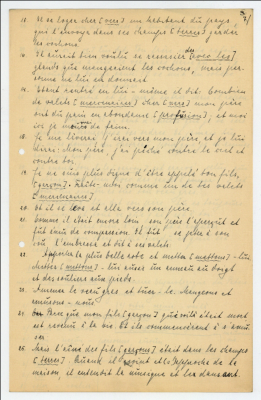 15. Il se loger chez [vers] un habitant du pays,
qui l'envoya dans ses champs [terres] garder
les cochons.
16. Il aurait bien voulu se rassasier des
glands que mangeaient les cochons, mais per-
sonne ne lui en donnait.
17. Etant rentré en lui-même et dit: Combien
de valets [mercenaires] chez [vers] mon père
ont du pain en abondance [profusion], et moi
ici je meurs de faim.
18. Je me lèverai j'irai vers mon père et je lui
dirai: Mon père, j'ai péché contre le ciel et
contre toi.
19. Je ne suis plus digne d'être appelé ton fils,
[garçon]. Traite-moi comme un de tes valets
[mercenaires]
20. Et il se leva et alla vers son père.
21. Comme il était encore loin son père l'aperçut et
fut ému de compassion. Il se jeta à son
cou l'embrassa et dit à ses valets
22. Apportez la plus belle robe et mettez [mettons]-lui
un anneau au doigt
et des souliers aux pieds.
23. Amenez le veau gras et tuez-le. Mangeons et
24. Parce que mon fils [garçon] que voilà était mort
est revenu à la vie. Et ils commencèrent à
25. Mais l'aîné des fils [garçons] était dans les champs
[terres]. Quand il revint et s'approcha de la
maison il entendit la musique et les danses.